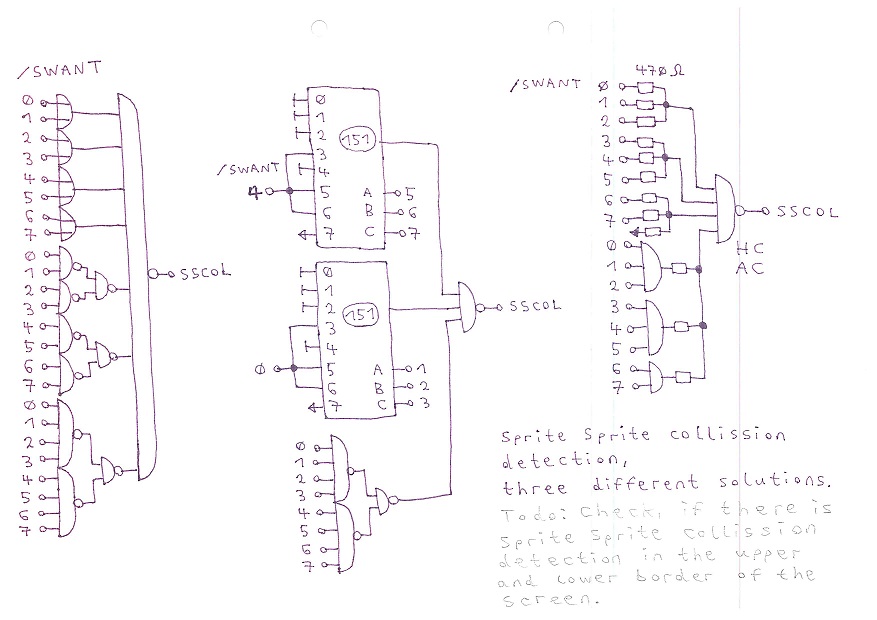 /SWANT
0
1
2
3
4
5
6
7
0
1
2
3
4
5
6
7
0
1
2
3
4
5
6
7
SSCOL
0
1
2
151
3
/SWANT 4
4 5 A 5
6 B 6
7 C 7
0
1
2
151
3
4
0 5 A 1
6 B 2
7 C 3
0
1
2
3
4
5
6
7
SSCOL
470Ω
/SWANT 0
1
2
3
4
5
6
7
SSCOL
0
1
2
HC
AC
3
4
5
6
7
Sprite Sprite collission
detection,
three different solutions.
Todo: Check, if there is
Sprite Sprite collission
detection in the upper
and lower border of the
screen.